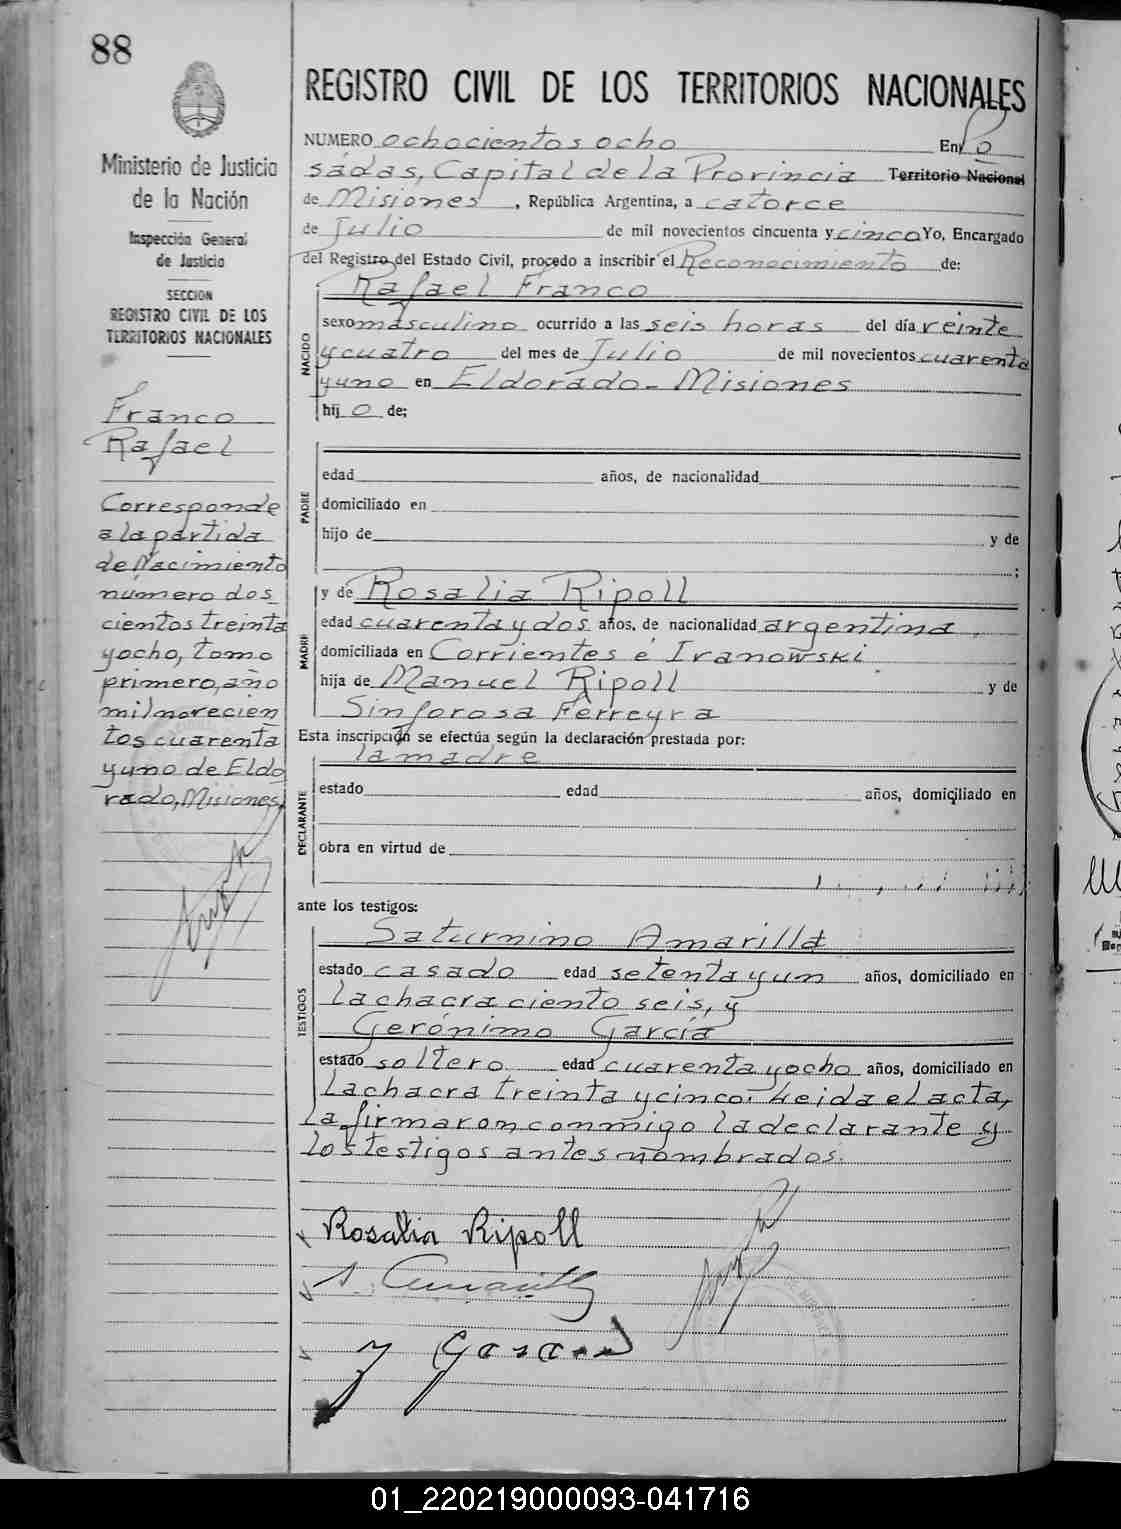 88
Ministerio de Justicia
de la Nación
Inspección General
de Justicia
SECCION
REGISTRO CIVIL DE LOS
TERRITORIOS NACIONALES
Franco
Rafael
Corresponde
a la partida
de Nacimiento
número dos
cientos treinta
y ocho, tomo
primero, año
mil novecien
tos cuarenta
y uno de Eldo
rado, Misiones,
REGISTRO CIVIL DE LOS TERRITORIOS NACIONALES
NUMERO ochocientos ocho En Po
sádas, Capital de la Provincia Territorio Nacional
de Misiones, República Argentina, a catorce
de Julio de mil novecientos cincuenta y cinco Yo, Encargado
del Registro del Estado Civil, procedo a inscribir el Reconocimiento de:
Rafael Franco
NACIDO
sexo masculino ocurrido a las seis horas del día veinte
y cuatro del mes de Julio de mil novecientos cuarenta
y uno en Eldorado - Misiones
hij o de:
PADRE
edad años, de nacionalidad
domiciliado en
hijo de y de
;
MADRE
y de Rosalia Ripoll
edad cuarenta y dos años, de nacionalidad argentina,
domiciliada en Corrientes é Ivanowski
hija de Manuel Ripoll y de
Sinforosa Ferreyra
Esta inscripción se efectúa según la declaración prestada por:
la madre
DECLARANTE
estado edad años, domiciliado en
obra en virtud de
ante los testigos:
Saturnino Amarilla
TESTIGOS
estado casado edad setenta y un años, domiciliado en
la chacra ciento seis, y
Gerónimo García
estado soltero edad cuarenta y ocho años, domiciliado en
la chacra treinta y cinco. Leida el acta,
la firmaron conmigo la declarante y
los testigos antes nombrados.
Rosalia Ripoll
S. Amarilla
J Garcia
01_220219000093-041716